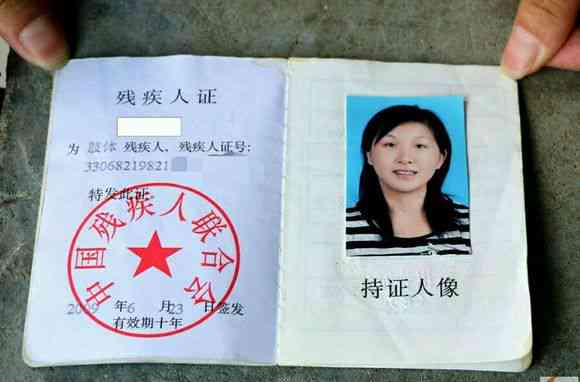 残疾人证
为 肢体 残疾人、残疾人证号:
33068219821
特发此证。
中国残疾人联合会
2009 年6 月23 日签发
有效期十年
持证人像